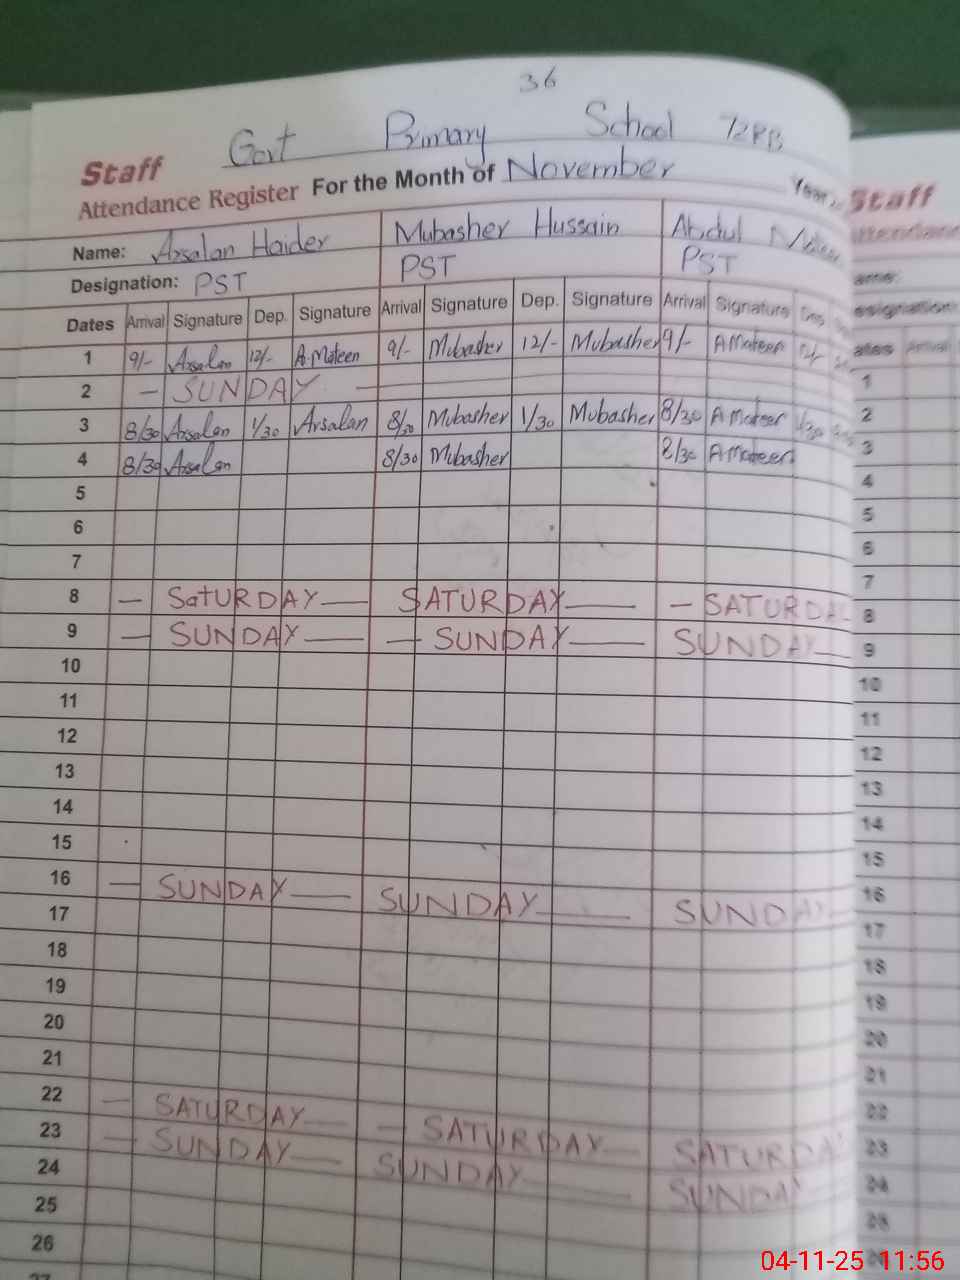 36
Govt Primary School 72RB
Staff
Attendance Register For the Month of November Year
Name: Arsalan Haider Mubasher Hussain Abdul
Designation: PST PST PST
Dates Arrival Signature Dep. Signature Arrival Signature Dep. Signature Arrival Signature
1 9/- Arsalan 12/- A.Mateen 9/- Mubasher 12/- Mubasher 9/- A Mateen
2 — SUNDAY —
3 8/30 Arsalan 1/30 Arsalan 8/30 Mubasher 1/30 Mubasher 8/30 A Mateen 1/30
4 8/30 Arsalan 8/30 Mubasher 8/30 A Mateen
5
6
7
8 — SatURDAY — SATURDAY — — SATURDA
9 — SUNDAY — — SUNDAY — SUNDAY —
10
11
12
13
14
15
16 — SUNDAY — SUNDAY — SUNDAY
17
18
19
20
21
22 — SATURDAY — — SATURDAY — SATURDA
23 — SUNDAY — SUNDAY — SUNDAY
24
25
26
27
Staff
1
2
3
4
5
6
7
8
9
10
11
12
13
14
15
16
17
18
19
20
21
22
23
24
25
04-11-25 11:56